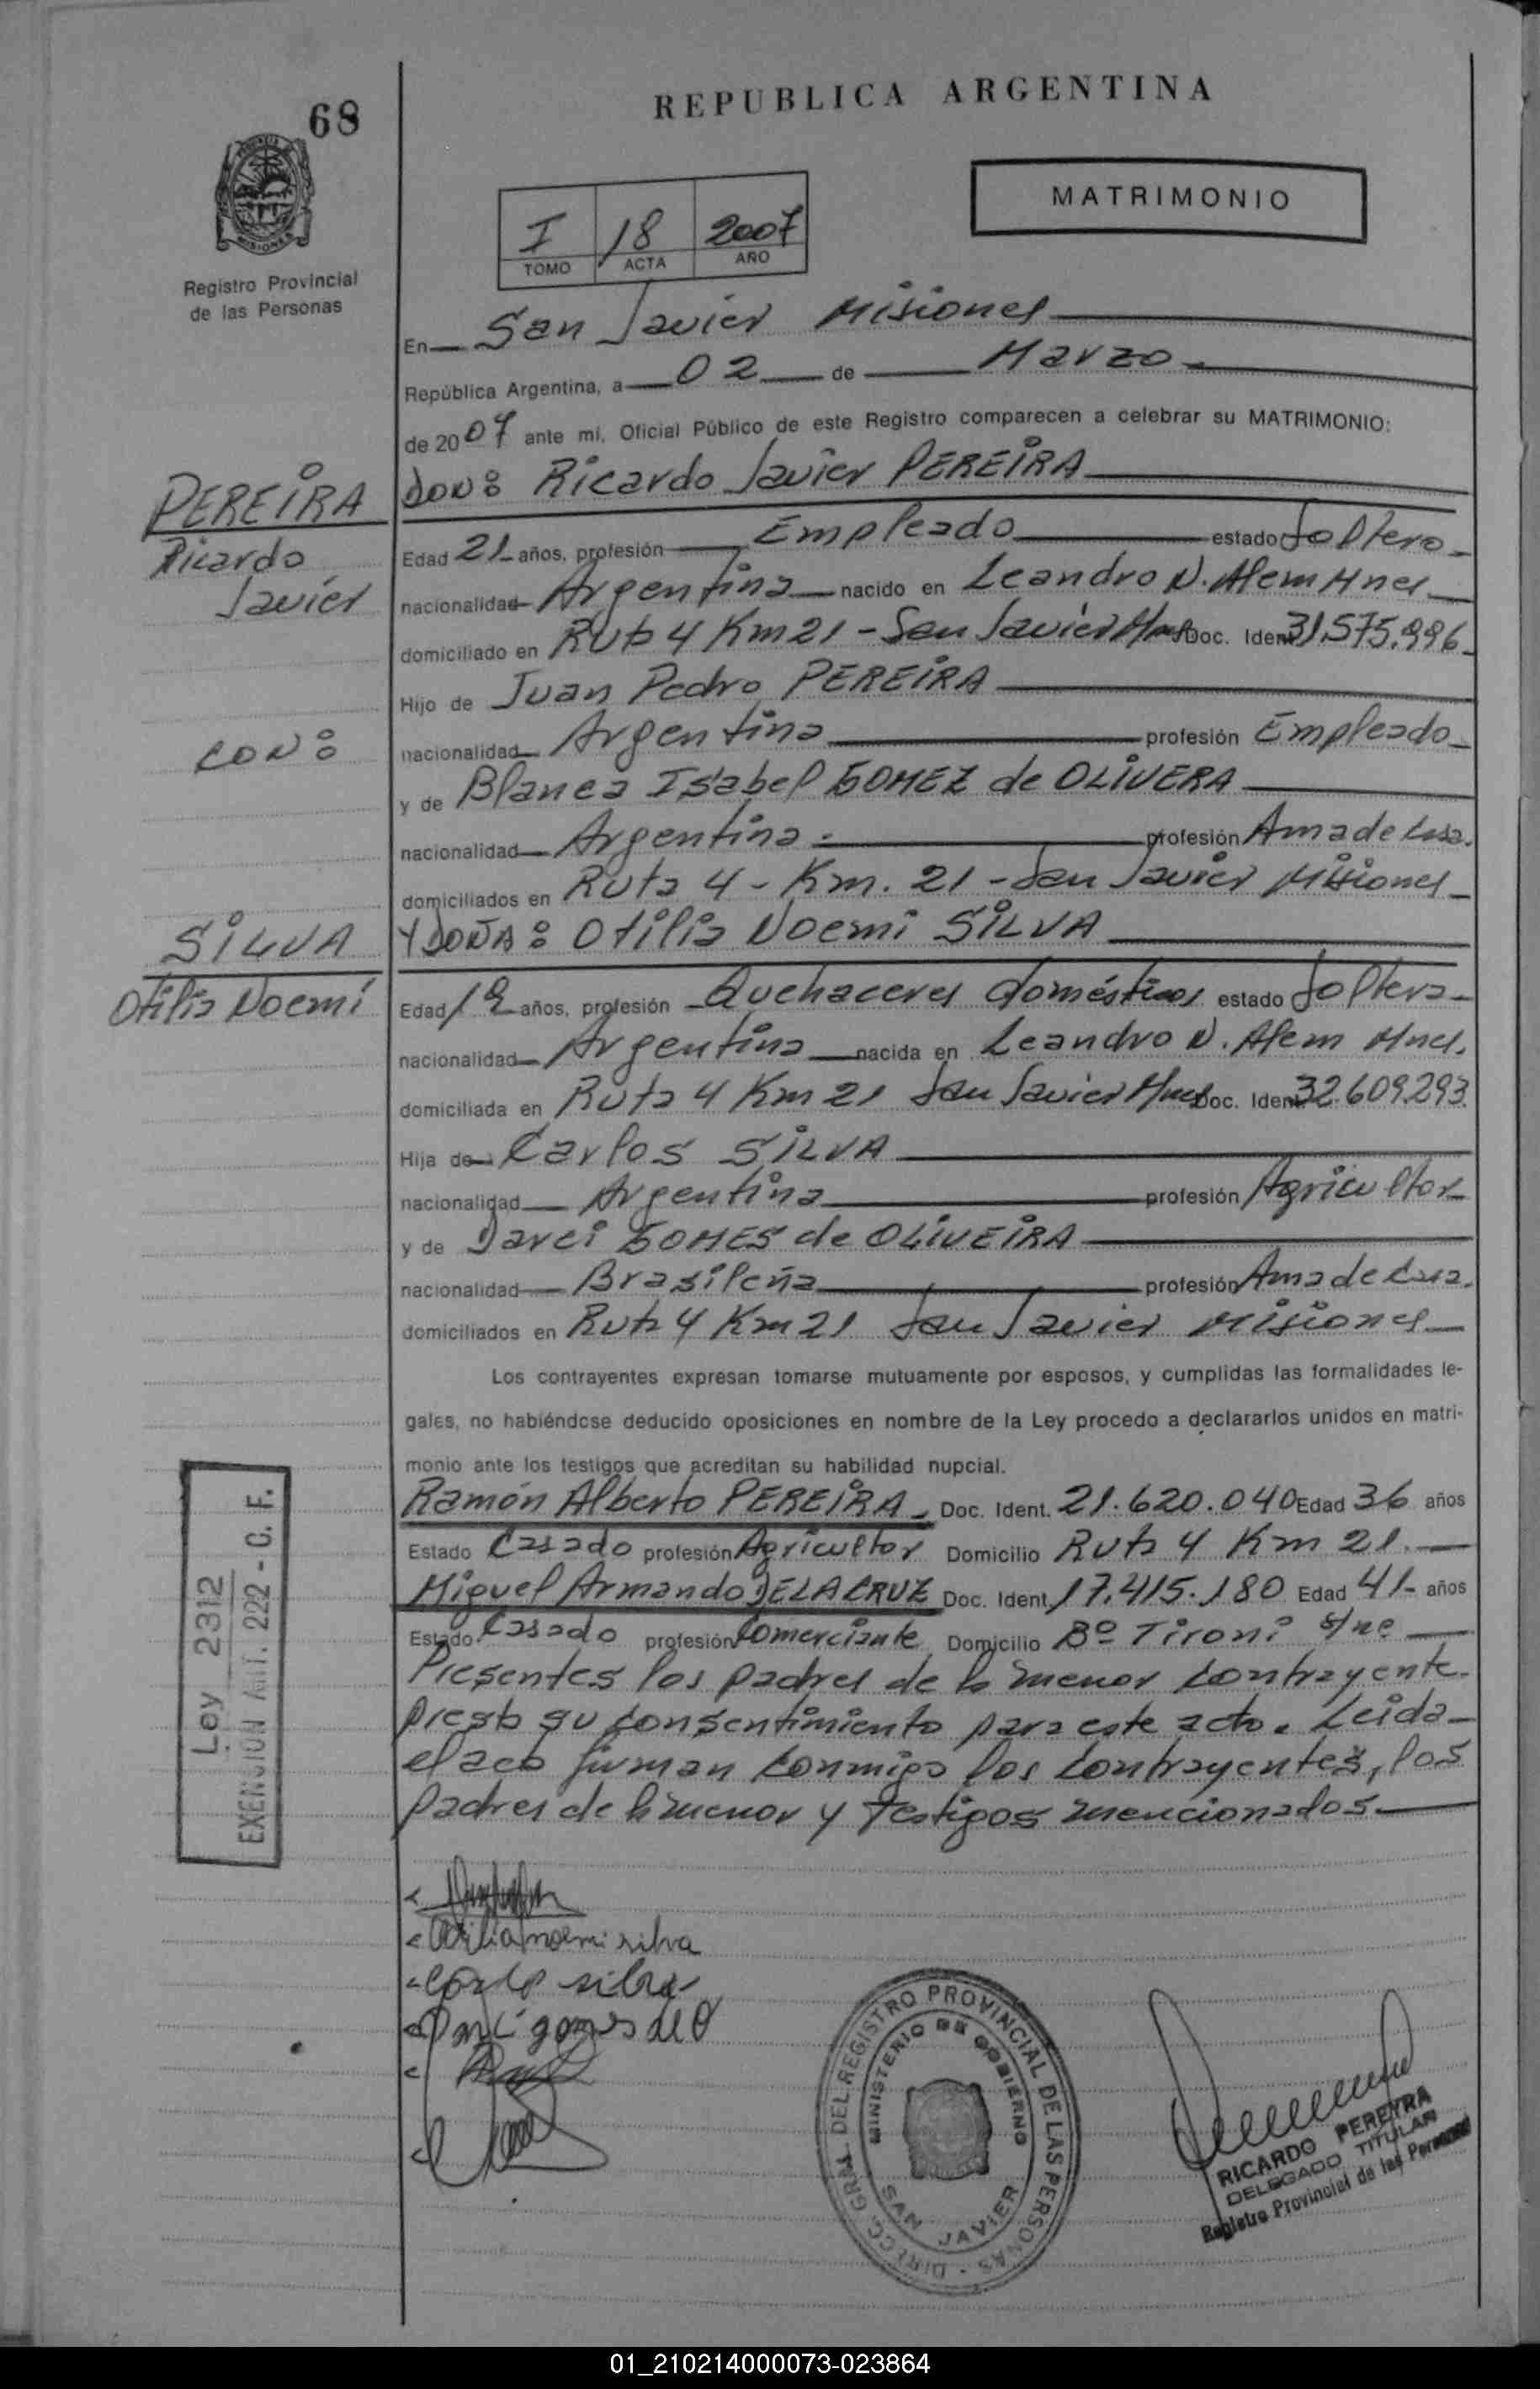 68
REPUBLICA ARGENTINA
MATRIMONIO
I 18 2007
TOMO ACTA AÑO
Registro Provincial
de las Personas
En San Javier Misiones
República Argentina, a 02 de Marzo
de 2007 ante mi, Oficial Público de este Registro comparecen a celebrar su MATRIMONIO:
DON: Ricardo Javier PEREIRA
PEREIRA
Ricardo
Javier
Edad 21 años, profesión Empleado estado Soltero
nacionalidad Argentina nacido en Leandro N. Alem Mnes
domiciliado en Ruta 4 Km 21 - San Javier Mnes Doc. Ident. 31.575.996
Hijo de Juan Pedro PEREIRA
CON:
nacionalidad Argentina profesión Empleado
y de Blanca Isabel GOMEZ de OLIVERA
nacionalidad Argentina profesión Ama de Casa.
domiciliados en Ruta 4 - Km. 21 - San Javier Misiones
Y DOÑA: Otilia Noemi SILVA
SILVA
Otilia Noemi
Edad años, profesión Quehaceres domésticos estado Soltera
nacionalidad Argentina nacida en Leandro N. Alem Mnes.
domiciliada en Ruta 4 Km 21 San Javier Mnes Doc. Ident. 32.609.293
Hija de Carlos SILVA
nacionalidad Argentina profesión Agricultor
y de Darci GOMES de OLIVEIRA
nacionalidad Brasileña profesión Ama de Casa.
domiciliados en Ruta 4 Km 21 San Javier Misiones
Los contrayentes expresan tomarse mutuamente por esposos, y cumplidas las formalidades le-
gales, no habiéndose deducido oposiciones en nombre de la Ley procedo a declararlos unidos en matri-
monio ante los testigos que acreditan su habilidad nupcial.
Ramón Alberto PEREIRA Doc. Ident. 21.620.040 Edad 36 años
Estado Casado profesión Agricultor Domicilio Ruta 4 Km 21.
Miguel Armando DELACRUZ Doc. Ident. 17.415.180 Edad 41 años
Estado Casado profesión Comerciante Domicilio Bº Tironi s/nº
Presentes los padres de la menor contrayente
presto su consentimiento para este acto. Leida
el acta firman conmigo los contrayentes, los
padres de la menor y testigos mencionados.
Ley 2312
EXENSION ART. 222 - C. F.
Otilia noemi silva
Carlo silva
Darci gomes de O
DIRECC. GRAL. DEL REGISTRO PROVINCIAL DE LAS PERSONAS
MINISTERIO DE GOBIERNO
SAN JAVIER
RICARDO PEREYRA
DELEGADO TITULAR
Registro Provincial de las Personas
01_210214000073-023864